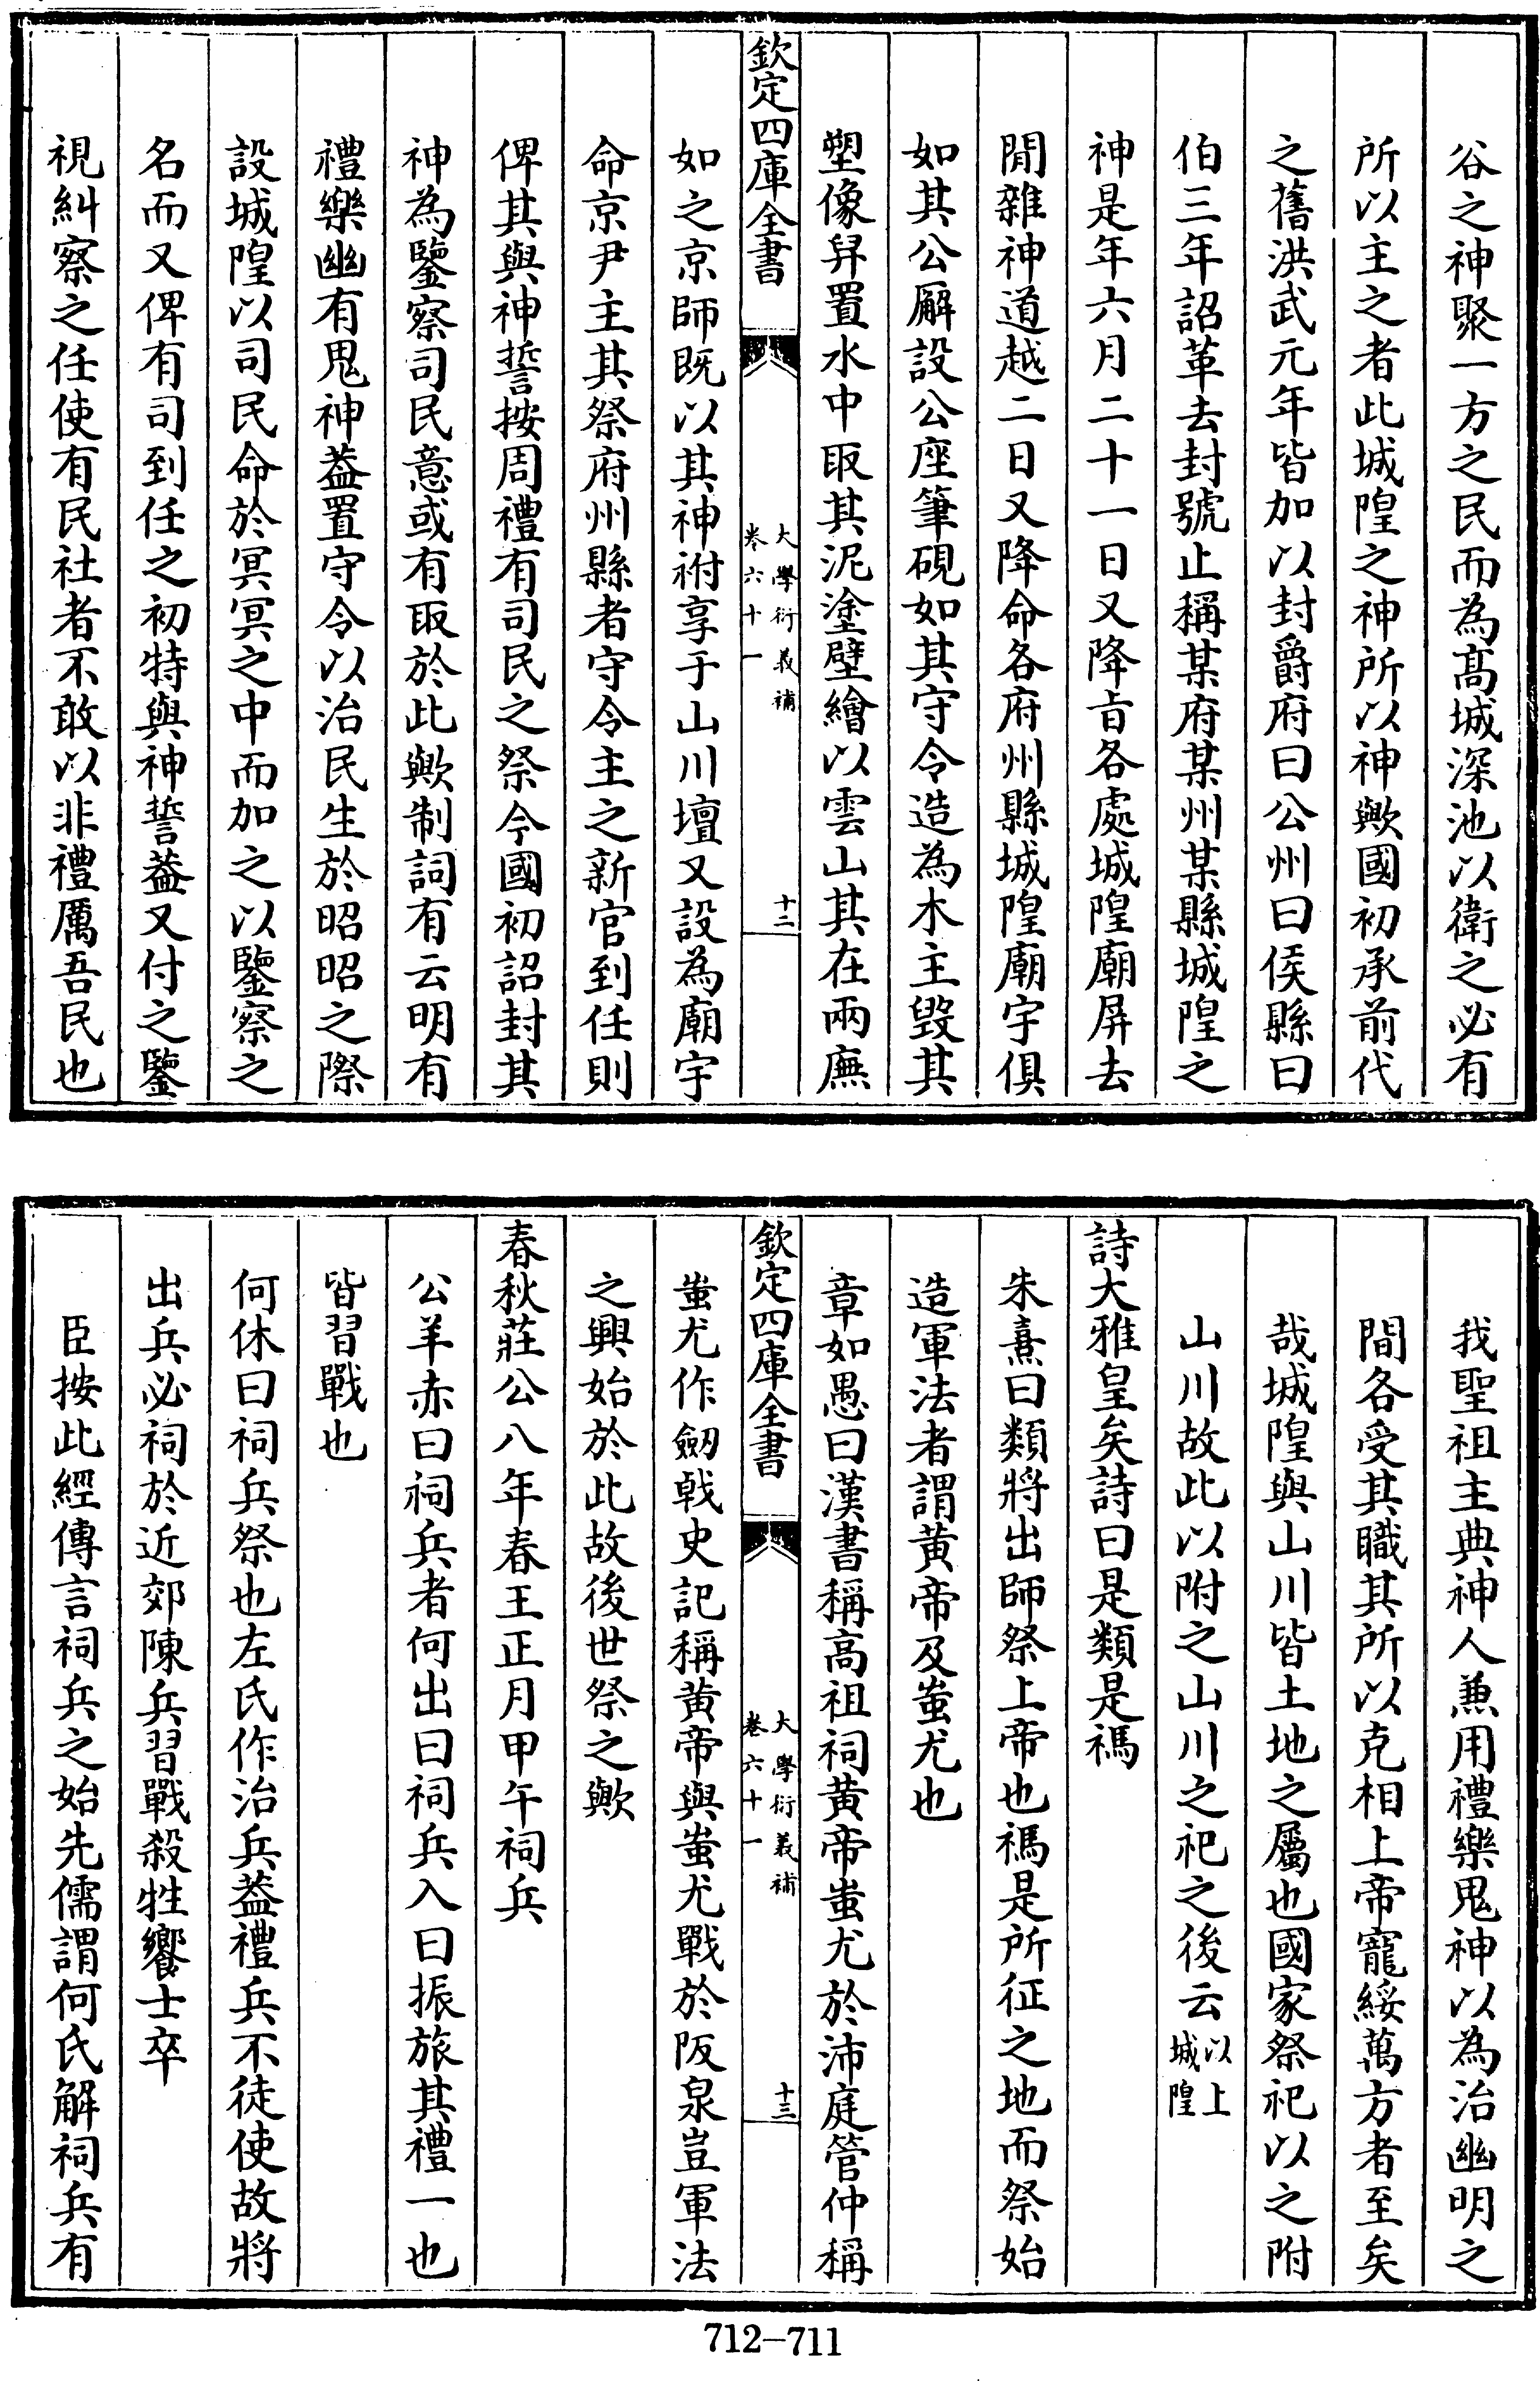 谷之神聚一方之民而為高城深池以衛之必有
所以主之者此城隍之神所以神歟國初承前代
之舊洪武元年皆加以封爵府曰公州曰侯縣曰
伯三年詔革去封號止稱某府某州某縣城隍之
神是年六月二十一日又降旨各處城隍廟屏去
閒雜神道越二日又降命各府州縣城隍廟宇俱
如其公廨設公座筆硯如其守令造為木主毀其
塑像舁置水中取其泥塗壁繪以雲山其在兩廡
欽定四庫全書
大學衍義補
卷六十一
十二
如之京師既以其神祔享于山川壇又設為廟宇
命京尹主其祭府州縣者守令主之新官到任則
俾其與神誓按周禮有司民之祭今國初詔封其
神為鑒察司民意或有取於此歟制詞有云明有
禮樂幽有鬼神葢置守令以治民生於昭昭之際
設城隍以司民命於冥冥之中而加之以鑒察之
名而又俾有司到任之初特與神誓葢又付之鑒
視糾察之任使有民社者不敢以非禮厲吾民也
我聖祖主典神人兼用禮樂鬼神以為治幽明之
間各受其職其所以克相上帝寵綏萬方者至矣
哉城隍與山川皆土地之屬也國家祭祀以之附
山川故此以附之山川之祀之後云以上城隍
詩大雅皇矣詩曰是類是禡
朱熹曰類將出師祭上帝也禡是所征之地而祭始
造軍法者謂黄帝及蚩尤也
章如愚曰漢書稱高祖祠黄帝蚩尤於沛庭管仲稱
欽定四庫全書
大學衍義補
卷六十一
十三
蚩尤作劒戟史記稱黄帝與蚩尤戰於阪泉豈軍法
之興始於此故後世祭之歟
春秋莊公八年春王正月甲午祠兵
公羊赤曰祠兵者何出曰祠兵入曰振旅其禮一也
皆習戰也
何休曰祠兵祭也左氏作治兵葢禮兵不徒使故將
出兵必祠於近郊陳兵習戰殺牲饗士卒
臣按此經傳言祠兵之始先儒謂何氏解祠兵有
712-711